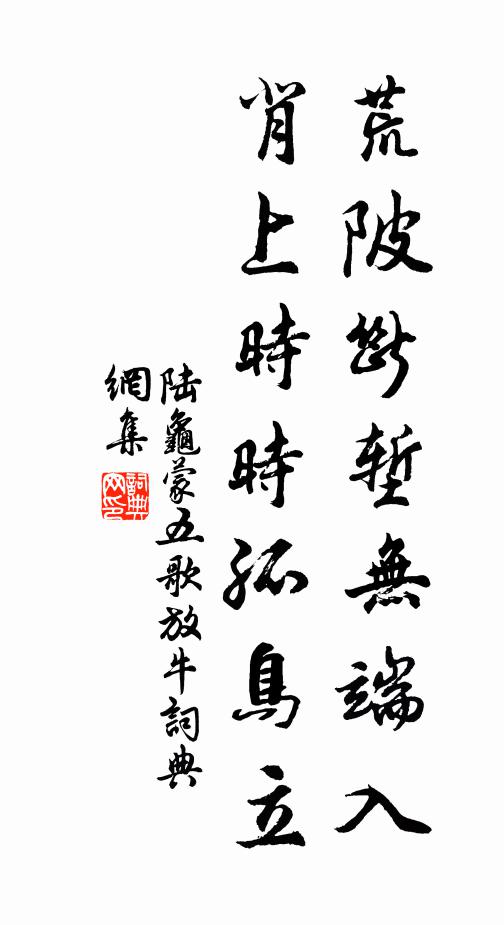 荒陂斷塹無端入
背上時時孤鳥立
陸龜蒙五歌放牛詞典
網集
詞典
网印